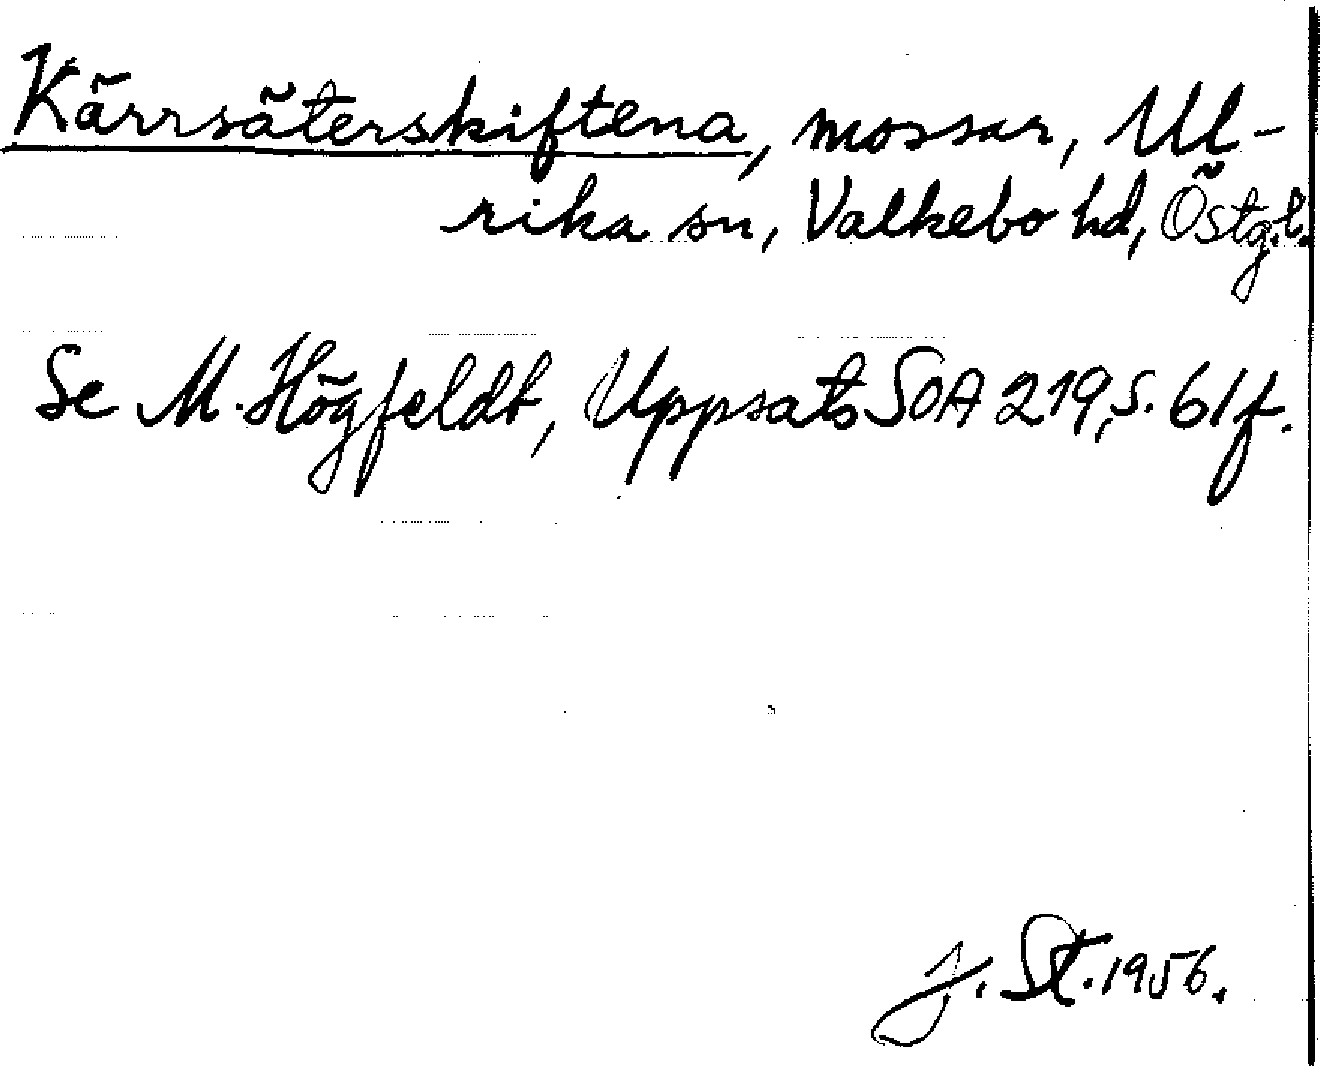 Kärrsäterskiftena, mossar, Ul-
rika sn, Valkebo hd, Östg.l.
Se M. Högfeldt, Uppsats SOA 219, s. 61f.
J. St. 1956.